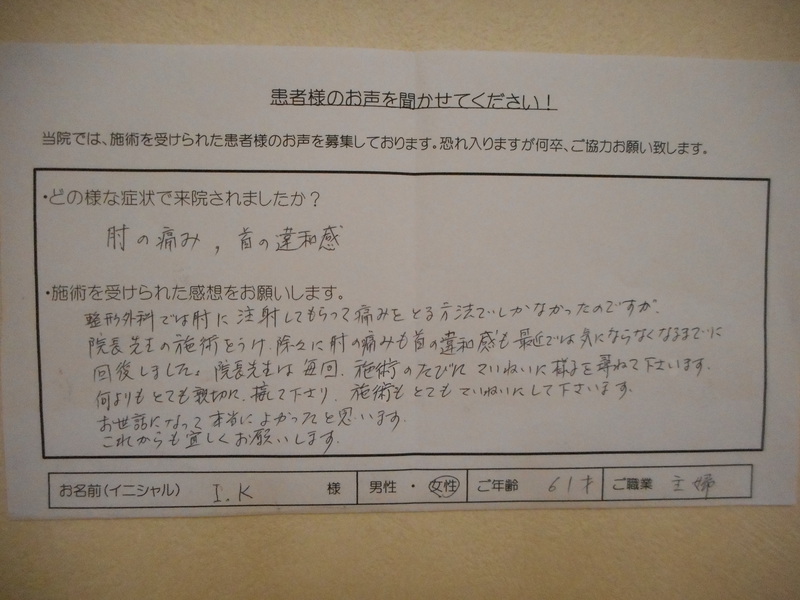 患者様のお声を聞かせてください！
当院では、施術を受けられた患者様のお声を募集しております。恐れ入りますが何卒、ご協力お願い致します。
・どの様な症状で来院されましたか？
肘の痛み，首の違和感
・施術を受けられた感想をお願いします。
整形外科では肘に注射してもらって痛みをとる方法でしかなかったのですが、
院長先生の施術をうけ、除々に肘の痛みも首の違和感も最近では気にならなくなるまでに
回復しました。院長先生は毎回、施術のたびにていねいに様子を尋ねて下さいます。
何よりもとても親切に、接して下さり、施術もとてもていねいにして下さいます。
お世話になって本当によかったと思います。
これからも宜しくお願いします。
お名前(イニシャル) I.K 様 男性 ・ 女性 ご年齢 61才 ご職業 主婦